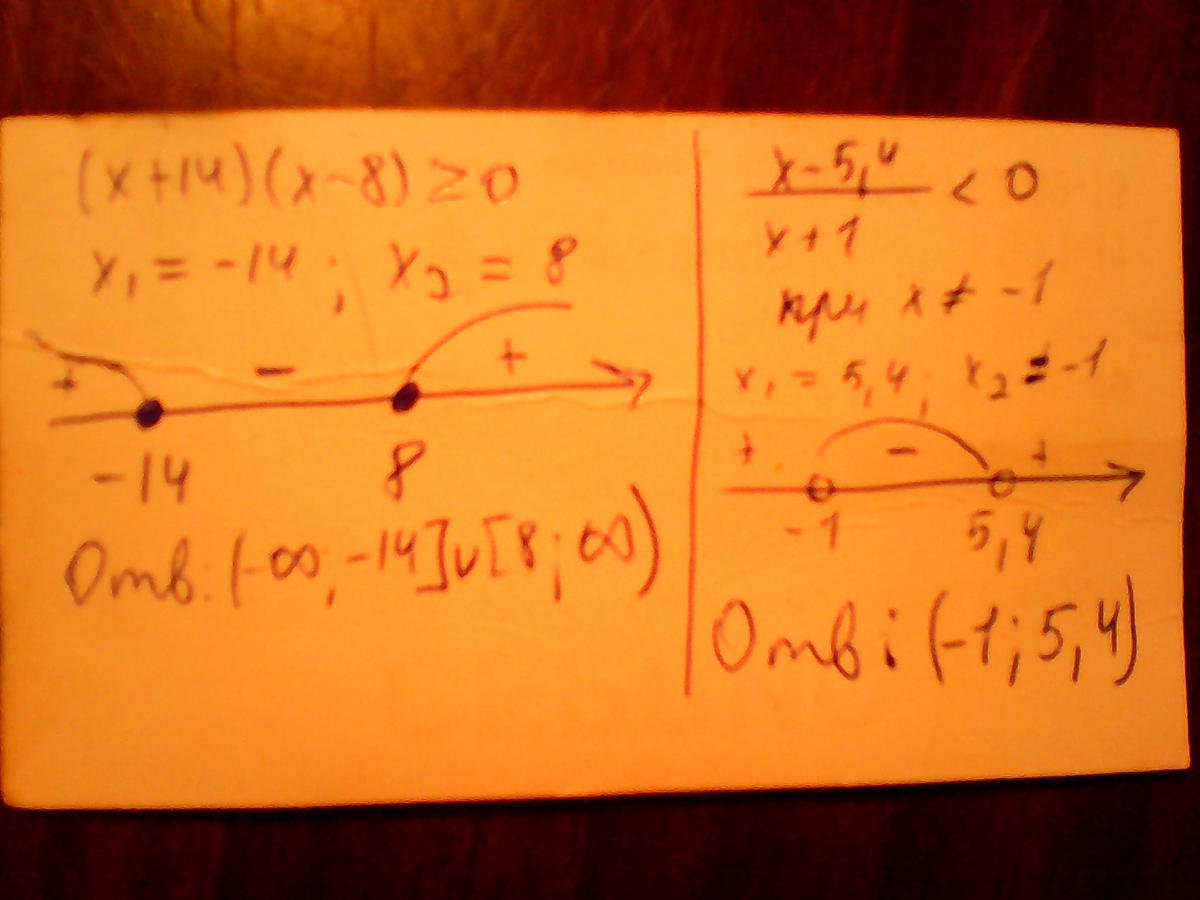 (x+14)(x-8) ≥ 0
x₁ = -14 ; x₂ = 8
+ - +
-14 8
Отв: (-∞; -14]∪[8; ∞)
x-5,4
x+1
< 0
при x ≠ -1
x₁ = 5,4; x₂ = -1
+ - +
-1 5,4
Отв: (-1; 5,4)